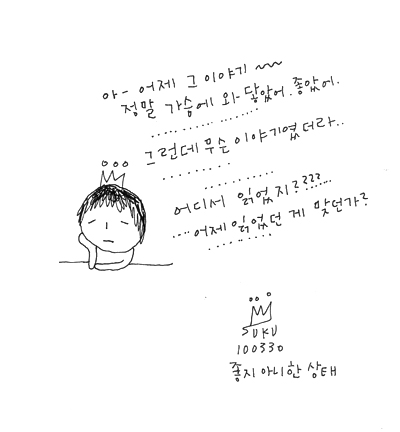 아- 어제 그 이야기 ~~
정말 가슴에 와 닿았어. 좋았어.
..................
그런데 무슨 이야기였더라..
.........
...........
어디서 읽었지????......
....어제 읽었던 게 맞던가?
.........
SUKU
100330
좋지아니한 상태